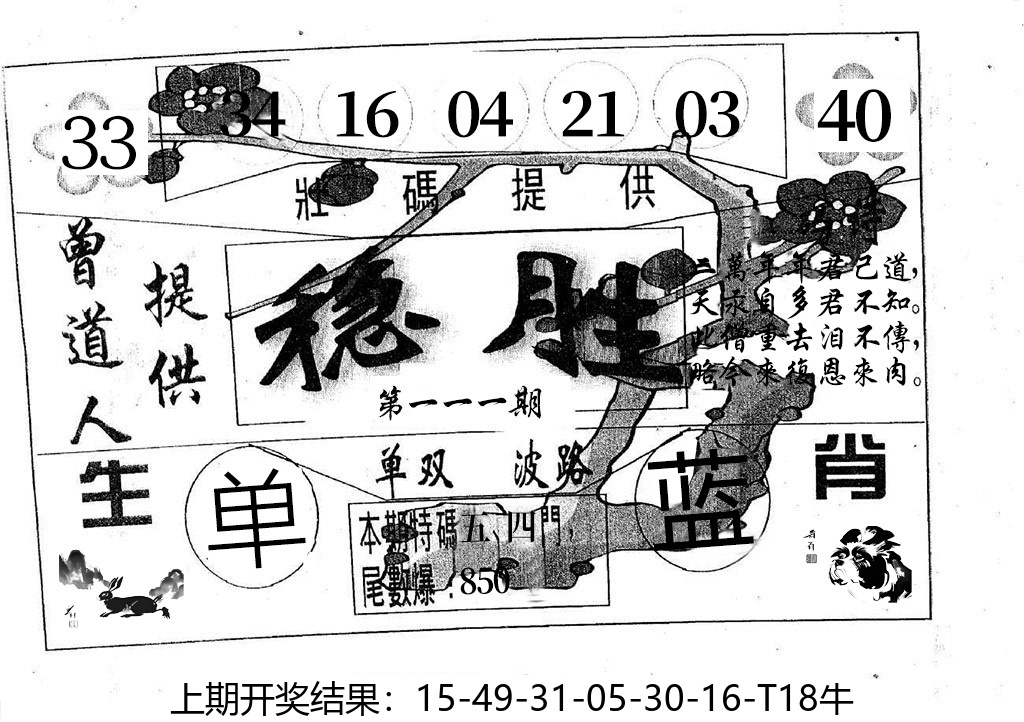 33 34 16 04 21 03 40
壯碼提供
曾道人
提供
穩胜
第一一一期
三萬年年君已道,
天汞自多君不知。
此僧重去泪不傳,
略今來復恩來肉。
单双 波路
生 肖
单
蓝
本期特碼五、四門,
尾數爆:850
上期开奖结果：15-49-31-05-30-16-T18牛